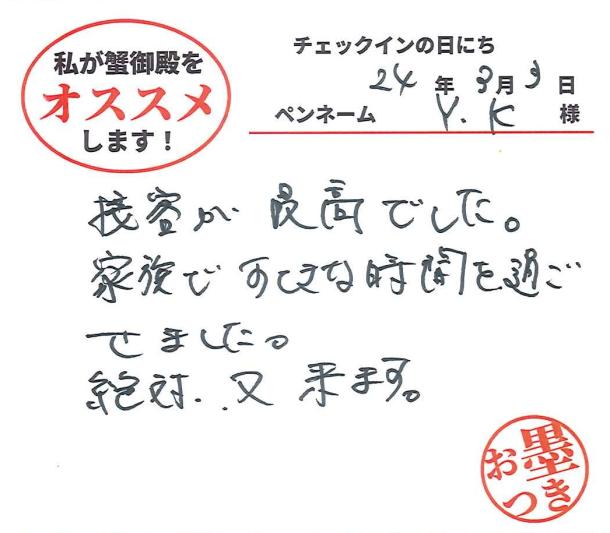 私が蟹御殿を
オススメ
します！
チェックインの日にち
24年3月3日
ペンネーム Y.K 様
接客が最高でした。
家族ですてきな時間を過ご
せました。
絶対、又来ます。
お墨
つき